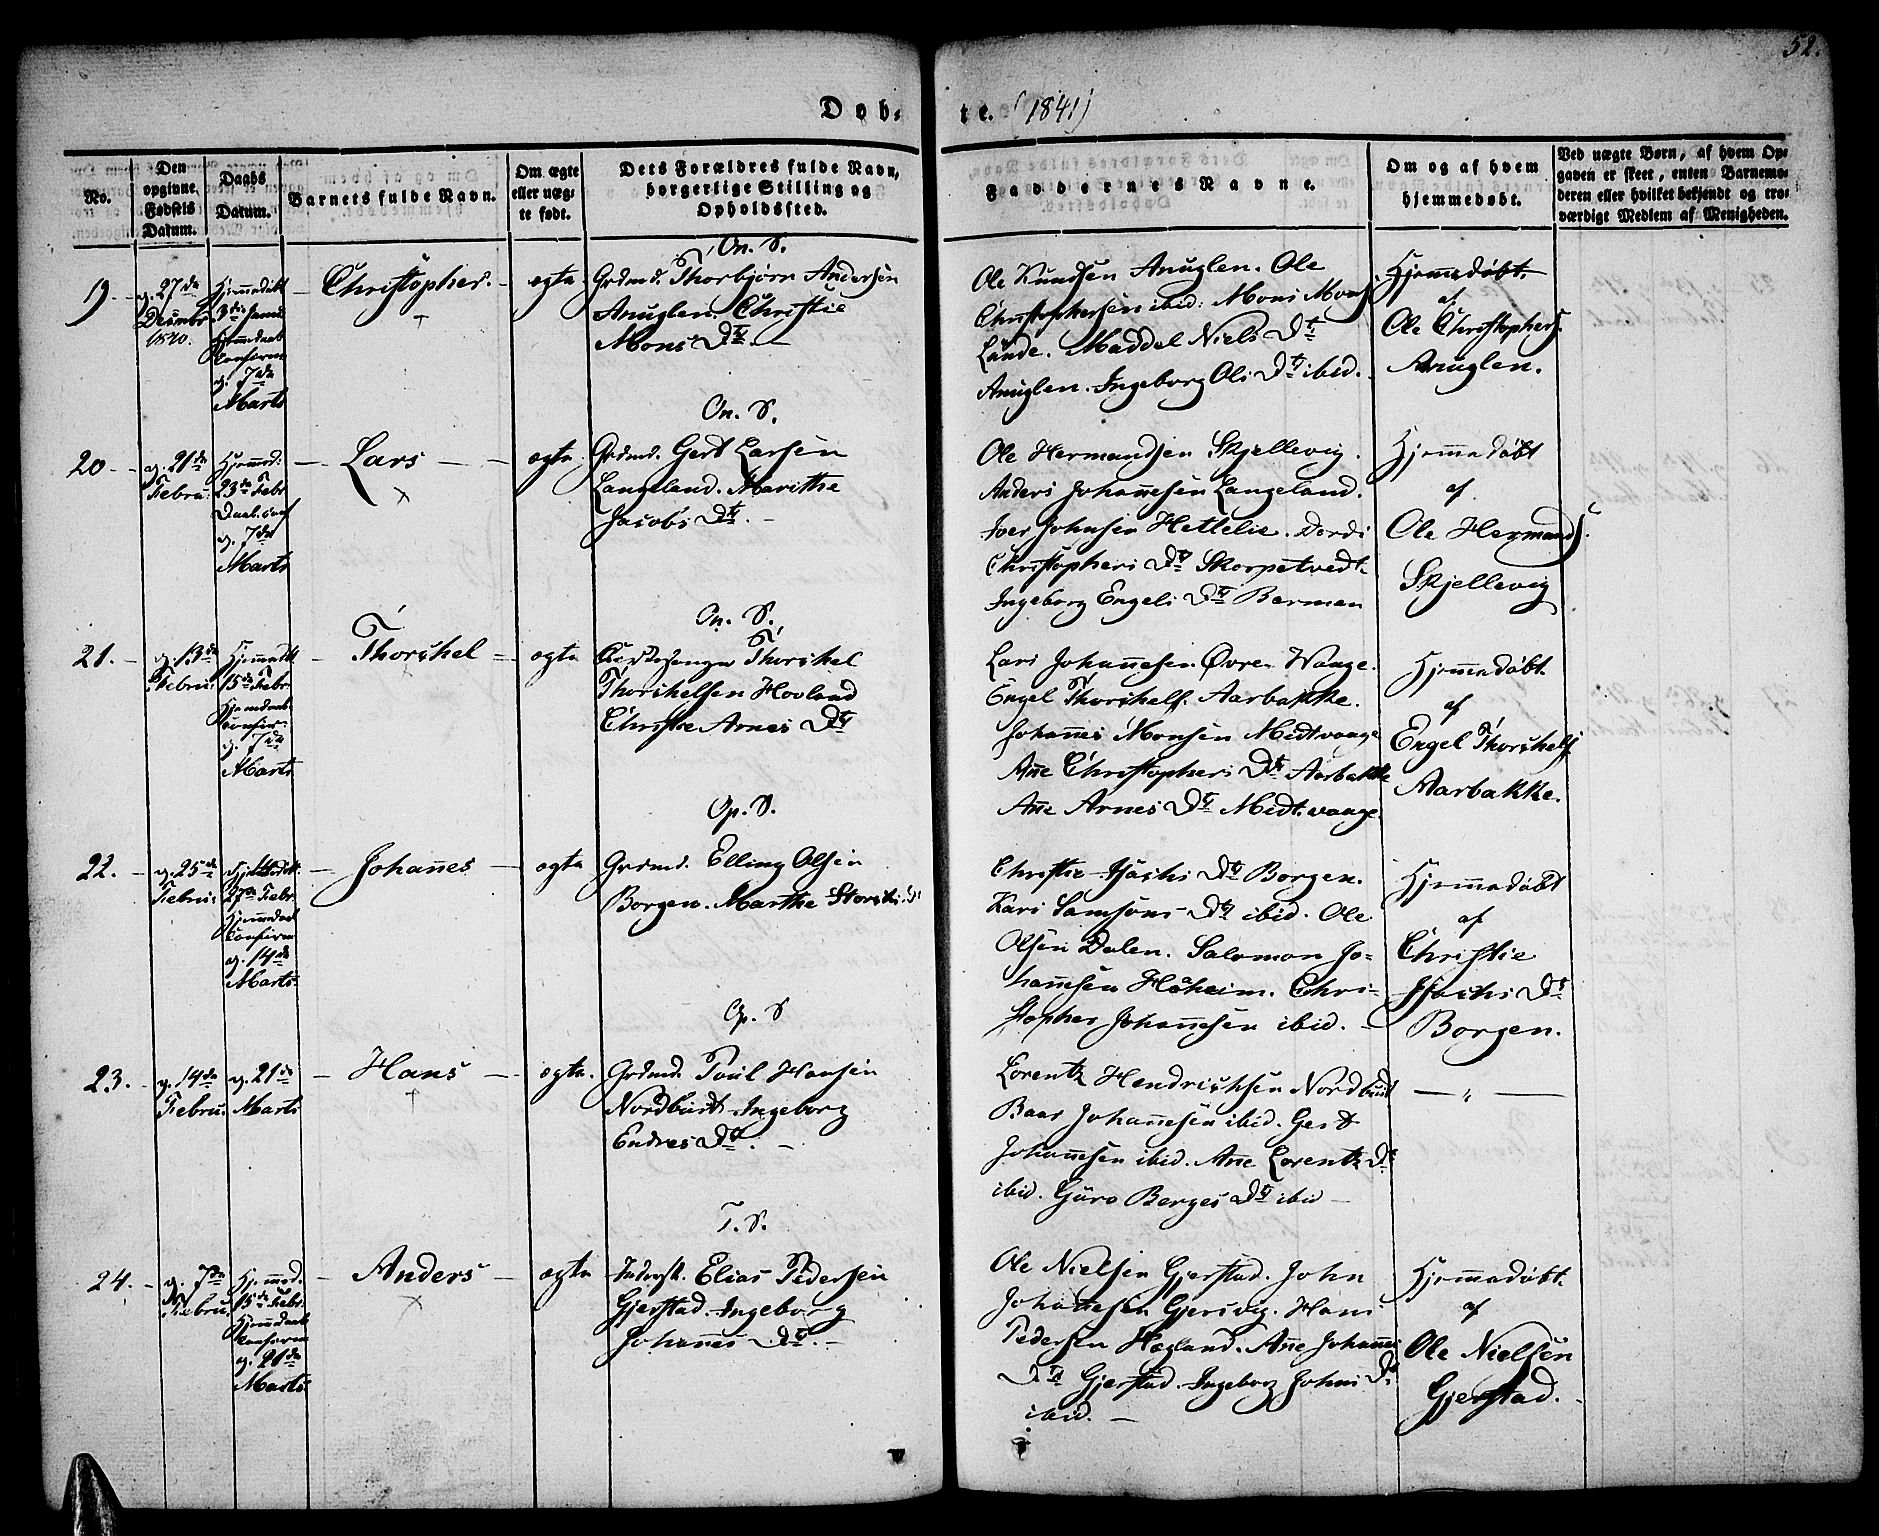 52.
Døb-
te. (1841)
No.
Den
opgivne
Fødsels
Datum.
Daabs
Datum.
Barnets fulde Navn.
Om ægte
eller uæg-
te født.
Dets Forældres fulde Navn,
borgerlige Stilling og
Opholdssted.
Faddernes Navne.
Om og af hvem
hjemmedøbt.
Ved uægte Børn, af hvem Op-
gaven er skeet, enten Barnemo-
deren eller hvilket bekjendt og tro-
værdigt Medlem af Menigheden.
19
d. 27de
Decembr
1840.
Hjemmedøbt
3die
d. 7de
Marts
Christopher.
ægte
On. S.
Grdmd. Thorbjørn Andersen
Anuglen. Christie
Mons Dtr. –
Ole Knudsen Anuglen. Ole
Christophersen ibid. Mons Mons
Lande. Maddel Niels Dtr
Anuglen. Ingeborg Ols Dtr ibid.
Hjemmedøbt
af
Ole Christophers
Anuglen.
20 –
d. 21de
Febru.
Hjemmed.
23de Febr.
d. 7de
Marts
Lars
ægte
On. S.
Grdmd. Gert Larsen
Langeland. Marithe
Jacobs Dtr. –
Ole Hermandsen Skjellevig.
Anders Johannesen Langeland.
Iver Johnsen Hettelie. Dordi
Christophers Dtr Skorpetvedt.
Ingeborg Engels Dtr Barmen
Hjemmedøbt
af
Ole Hermands.
Skjellevig
21. –
d. 13de
Febru.
15de Febr.
d. 7de
Marts
Thorchel
ægte
On. S.
Thorchel
Thorchelsen Hovland
Christie Arnes Dtr
Lars Johannesen Øvre Waage.
Engel Thorchels. Aarbakke.
Johannes Monsen Midtvaage
Ane Christophers Dtr Aarbakke
Ane Arnes Dtr Midtvaage.
Hjemmedøbt
af
Engel Thorchels
Aarbakke.
22. –
d. 25de
Febru.
27de Febr.
Hjemmedaab
Confirm
d. 14de
Marts.
Johanes
ægte
Op. S.
Grdmd. Elling Olsen
Borgen. Marthe
Christie Isachs Dtr Borgen.
Kari Samsons Dtr ibid. Ole
Olsen Dalen. Salomon Jo-
hannesen Håheim. Chri-
stopher Johannesen ibid. –
Hjemmedøbt
af
Christie
Isachs Dtr
Borgen.
23. –
d. 14de
Febru.
d. 21de
Marts
Hans
ægte.
Op. S
Grdmd. Poul Hansen
Nordbust. Ingeborg
Endres Dtr. –
Lorentz Hendrichsen Nordbust
Baar Johannesen ibid. Gert
Johannesen ibid. Ane Lorentz Dtr
ibid. Guro Berges Dtr ibid –
— " —
24. –
d. 7de
Febru.
Hjemmed.
15de Febr.
Hjemmdaab
Confirm
d. 21de
Marts
Anders
ægte
T. S.
Inderst. Elias Pedersen
Gjerstad. Ingeborg
Johannes Dtr. –
Ole Nielsen Gjerstad. John
Johannesen Gjersvig. Hans
Pedersen Hægland. Ane Johannes
Dtr Gjerstad. Ingeborg Johns Dtr
ibid. –
Hjemmedøbt.
af
Ole Nielsen
Gjerstad.